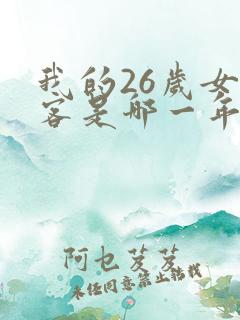 我的26歲女
客是哪一年
阿乜芨芨
未经同意禁止转载